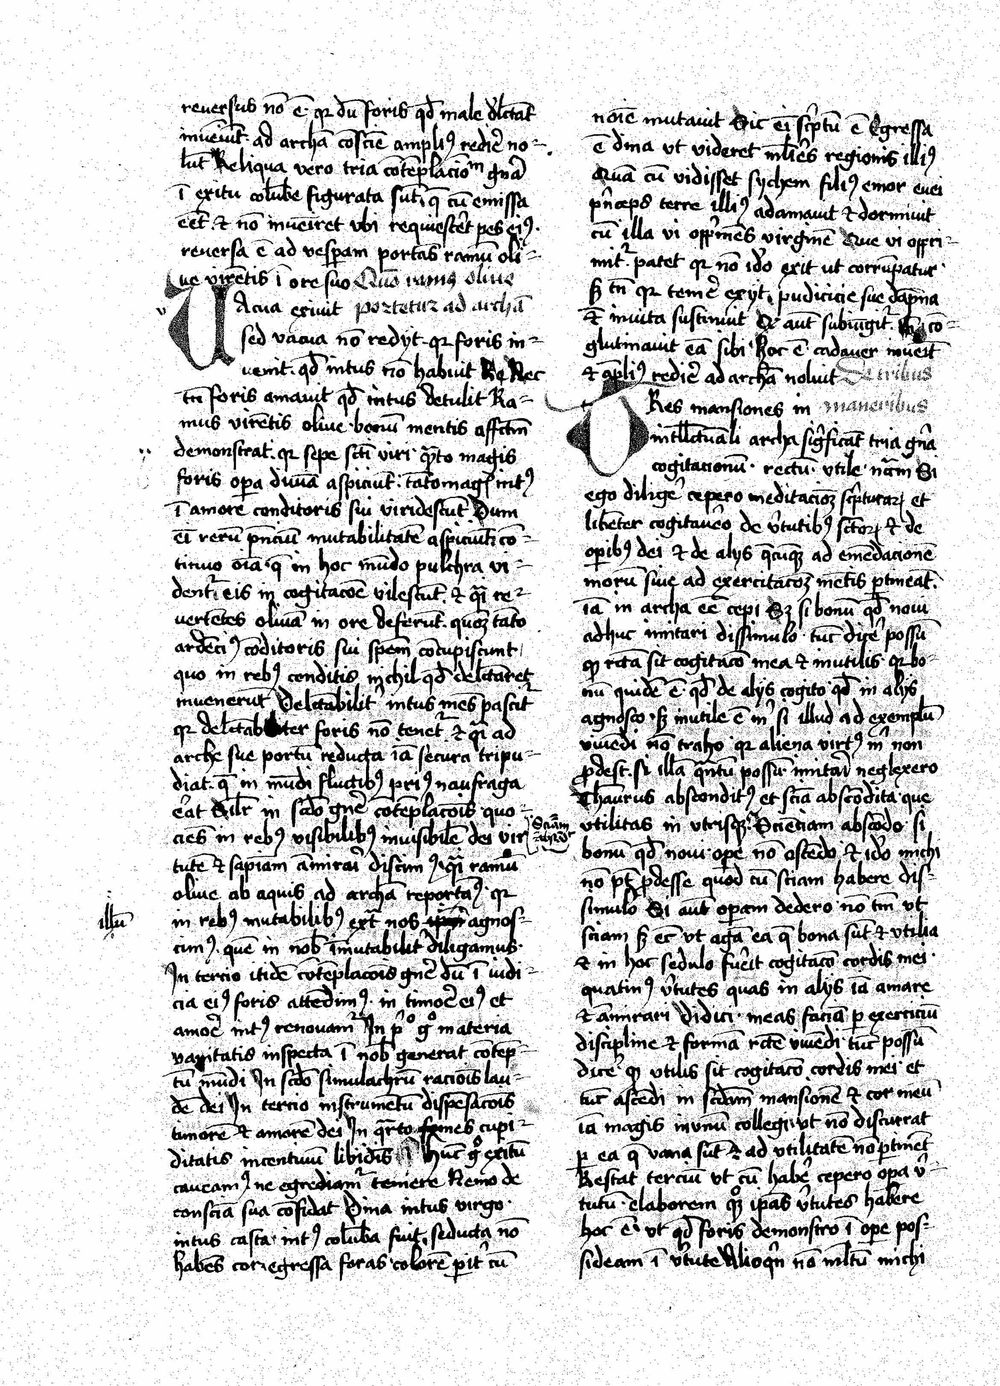 reuersus nō ē · qr dū foris qd̄ male dl̄ctat
inueuit · ad archā cōsciē ampliꝰ redir̄e no-
luit Reliqua vero tria cōtēplacionū gn̄a
ī exitu colūbe figurata sūt · q̄ cū emissa
eēt ⁊ nō inueīret vbi requiesc̄et pes eiꝰ ·
reuersa ē ad vesp̄am portās ramū oli-
ue virētis ī ore suo Quō ramꝰ oliue
portetur ad archā
Uacua exiuit
sed vacua nō redyt · qr foris in-
uenit · qd̄ intus nō habuit Nec
tn̄ foris amauit qd̄ intus detulit Ra-
mus virētis oliue bonū mentis affc̄m
demonstrat · qr sepe sc̄ti viri · q̄nto magis
foris oꝑa diuīa aspiciūt · tātomagꝭ intꝰ
ī amore conditoris sui viridescūt Dum
eī rerū p̄nciū mutabilitatē aspiciūt · cō-
tinuo oīa · q̄ in hoc mūdo pulchra vi-
dent̄ · eis in cogitacōe vilescūt · ⁊ q̄i re-
uertētes oliuā in ore deferūt · quoꝝ tāto
ardēciꝰ cōditoris sui spem̄ cōcupiscunt
quo in rebꝰ conditis nichil qd̄ delc̄taret
inuenerūt Delc̄tabilitꝰ intus mēs pascit̄
qr delc̄tabiliter foris nō tenet̄ ⁊ q̄i ad
arche sue portū reducta iā secura tripu-
diat · q̄ in mūdi fluctibꝰ priꝰ naufraga
er̄at Silr̄ in sc̄do gn̄er̄e cōtēplacōis quo-
ciēs in rebꝰ visibilibꝰ inuisibilē dei vir-
tutē ⁊ sapiam̄ amirari discimꝰ · q̄i ramū
oliue ab aquis ad archā reportamꝰ · qr
in rebꝰ mutabilibꝰ ext̄ nos agnos-
illū
cimꝰ · quē in nob̄ īmutabilit̄ diligamus ·
In tercio itidē cōtēplacōis gn̄er̄e dū ī iudi-
cia eiꝰ foris attēdimꝰ · in timor̄e eiꝰ et
amor̄e intꝰ renouam̄ In pͦ gͦ materia
vanitatis inspecta ī nob̄ generat cōtēp-
tū mūdi In sc̄do simulachrū raciōis lau-
dē dei In tercio instrumētū dispēsacōis
timorē ⁊ amorē dei In q̄rto fomes cupi-
ditatis incentiuū libidīs Hūc gͦ exitū
caueamꝰ · ne egrediam̄ temere Nemo de
conscīa sua cōfidat Dina intus virgo ·
intus casta · intꝰ colūba fuit · seducta nō
habēs cor · egressa foras · colorē ꝑit · cū
noīe mutauit Sic eī sc̄ptū ē Egressa
ē dina vt videret ml̄ier̄es regionis illiꝰ
Quā cū vidisset sychem filiꝰ emor euei
p̄nceps terre illiꝰ adamauit ⁊ dormiuit
cū illa vi opp̄mēs virginē Que vi oppri-
mit̄ · patet qr nō idͦo exit ut corrūpatur ·
sꝫ tn̄ qr temer̄e exyt · pudicicie sue dāpna
⁊ inuita sustinuit Qͥ aūt subiūgit̄ · cō-
glutinauit eā sibi · hoc ē · cadauer inuēit
⁊ āpliꝰ redir̄e ad archā noluit De tribus
maneribus
Tres mansiones in
intllc̄tuali archa sigͥficāt tria gn̄a
cogitacionū · rectū · vtile · nc̄m Si
ego diliger̄e cepero meditacioꝫ sc̄pturaꝝ et
libēter cogitauēo de v̄tutibꝰ sc̄toꝝ ⁊ de
oꝑibꝰ dei ⁊ de alys q̄cūqꝫ ad emēdacionē
morū siue ad exercitacoꝫ mētis ꝑtineāt ·
iā in archa eē cepi Sꝫ si bonū qd̄ noui
adhuc imitari dissimulo · tūc dicer̄e possū
qꝫ rc̄ta sit cogitacō mea ⁊ inutilis · qr bo-
nū quidē ē qd̄ de alys cogito · qd̄ in alys
agnosco · sꝫ inutile ē mͥ · si illud ad exemplū
viuēdi nō traho · qr aliena virtꝰ mͥ non
ꝓdest · si illā q̄ntū possū imitari neglexero
Thaurus absconditꝰ et scīa abscōdita · que
utilitas in vtrisqꝫ · Scienciam abscōdo · si
Sciam̄
abscō
bonū qd̄ noui · ope nō ostēdo · ⁊ idͦo michi
nō pt̄ ꝓdesse quod cū sciam habere dis-
simulo Si aūt operam dedero nō tm̄ vt
sciam sꝫ ec̄ vt agā ea q̄ bona sūt ⁊ vtilia
⁊ in hoc sedulo fuēit cogitacō cordis mei ·
quatinꝰ v̄tutes quas in alys iā amare
⁊ āmirari didici · meas faciā ꝑ exerciciū
discipline ⁊ formā rc̄te viuēdi · tūc possū
dicer̄e qꝫ vtilis sit cogitacō cordis mei · et
tūc ascēdi in sc̄dam mansionē ⁊ cor meū
iā magis in vnū collegi · vt nō discurrat
ꝑ ea q̄ vana sūt ⁊ ad vtilitatē nō ꝑtinēt
Restat terciū vt cū haber̄e cepero oꝑa v̄-
tutū · elaborem qꝫ ipās v̄tutes habere
hoc ē · vt qd̄ foris demonstro ī oꝑe pos-
sideam ī v̄tute Alioqn̄ nō ml̄tū michi